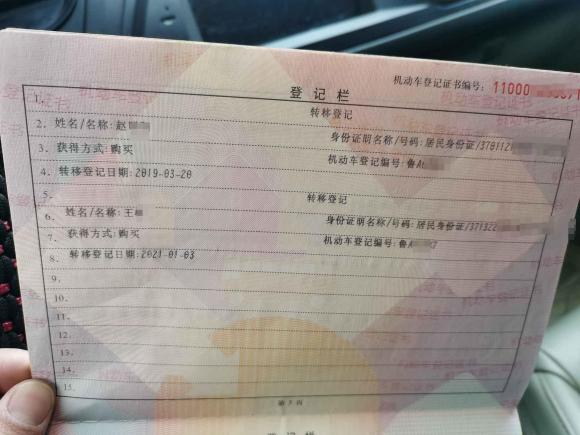 机动车登记证书编号: 11000
登记栏
1. 转移登记
2. 姓名/名称:赵 身份证明名称/号码:居民身份证/370112
3. 获得方式:购买 机动车登记编号:鲁A
4. 转移登记日期:2019-03-20
5. 转移登记
6. 姓名/名称:王 身份证明名称/号码:居民身份证/371322
7. 获得方式:购买 机动车登记编号:鲁A
8. 转移登记日期:2021-01-03
9.
10.
11.
12.
13.
14.
15.
第 5 页
登记栏